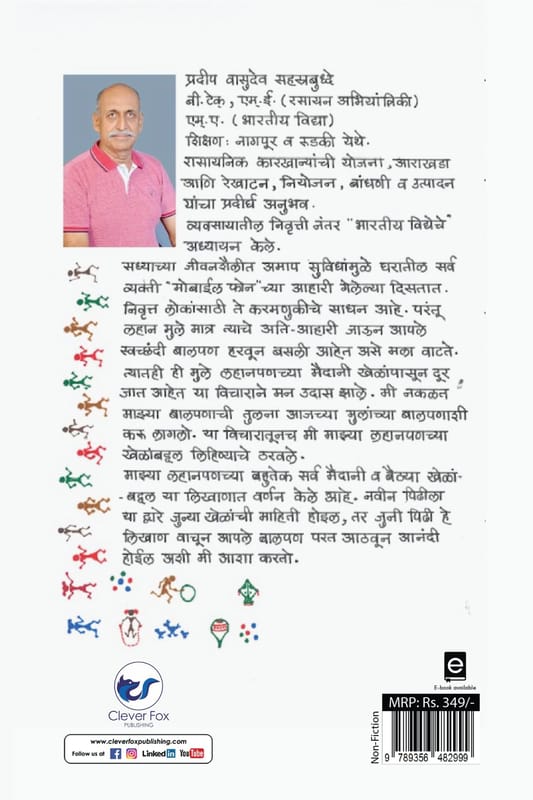 प्रदीप वासुदेव सहस्रबुध्दे
बी.टेक., एम्.ई. (रसायन अभियांत्रिकी)
एम्.ए. (भारतीय विद्या)
शिक्षण: नागपूर व रुडकी येथे.
रासायनिक कारखान्यांची योजना, आराखडा
आणि रेखाटन, नियोजन, बांधणी व उत्पादन
यांचा प्रदीर्घ अनुभव.
व्यवसायातील निवृत्ती नंतर "भारतीय विद्येचे"
अध्यायन केले.
सध्याच्या जीवनशैलीत अमाप सुविधांमुळे घरातील सर्व
व्यक्ती "मोबाईल फोन"च्या आहारी गेलेल्या दिसतात.
निवृत्त लोकांसाठी ते करमणुकीचे साधन आहे. परंतू
लहान मुले मात्र त्याचे अति-आहारी जाऊन आपले
स्वच्छंदी बालपण हरवून बसली आहेत असे मला वाटते.
त्यातही ही मुले लहानपणच्या मैदानी खेळांपासून दूर
जात आहेत या विचाराने मन उदास झाले. मी नकळत
माझ्या बालपणाची तुलना आजच्या मुलांच्या बालपणाशी
करू लागलो. या विचारातूनच मी माझ्या लहानपणच्या
खेळांबद्दल लिहिण्याचे ठरवले.
माझ्या लहानपणच्या बहुतेक सर्व मैदानी व बैठ्या खेळां-
-बद्दल या लिखाणात वर्णन केले आहे. नवीन पिढीला
या द्वारे जुन्या खेळांची माहिती होइल, तर जुनी पिढी हे
लिखाण वाचून आपले बालपण परत आठवून आनंदी
होईल अशी मी आशा करतो.
Clever Fox
PUBLISHING
www.cleverfoxpublishing.com
Follow us at Linked in YouTube
e
E-book available
MRP: Rs. 349/-
Non-Fiction
9 789356 482999